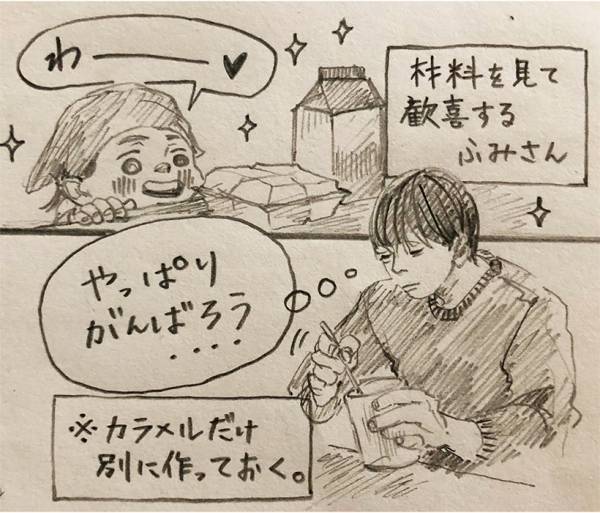 わ――――♥
材料を見て
歓喜する
ふみさん
やっぱり
がんばろう
････
※カラメルだけ
別に作っておく。